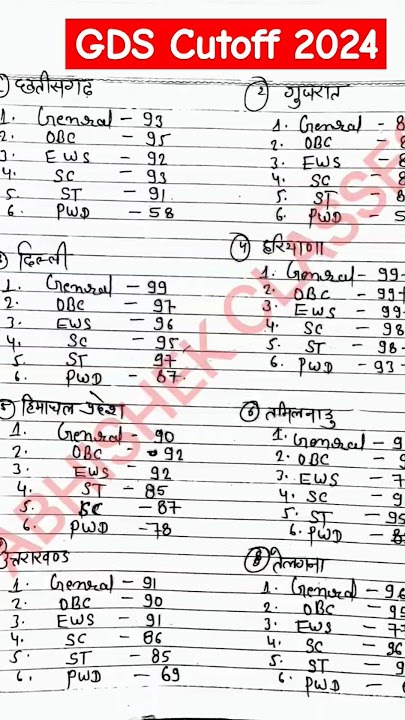 GDS Cutoff 2024
छत्तीसगढ़
1. General - 93
2. OBC - 95
3. EWS - 92
4. SC - 93
5. ST - 91
6. PWD - 58
2 गुजरात
1. General - 8
2. OBC
3. EWS - 8
4. SC - 8
5. ST - 8
6. PWD - 5
दिल्ली
1. General - 99
2. OBC - 97
3. EWS - 96
4. SC - 95
5. ST - 97
6. PWD - 87
4 हरियाणा
1. General - 99
2. OBC - 99
3. EWS - 99
4. SC - 98
5. ST - 98
6. PWD - 93
5 हिमाचल प्रदेश
1. General - 90
2. OBC - 92
3. EWS - 92
4. ST - 85
5. SC - 87
6. PWD - 78
6 तमिलनाडु
1. General - 9
2. OBC - 9
3. EWS - 7
4. SC - 9
5. ST - 95
6. PWD - 8
उत्तराखण्ड
1. General - 91
2. OBC - 90
3. EWS - 91
4. SC - 86
5. ST - 85
6. PWD - 69
8 तेलंगना
1. General - 96
2. OBC - 95
3. EWS - 77
4. SC - 96
5. ST - 9
6. PWD -
ABHISHEK CLASSES